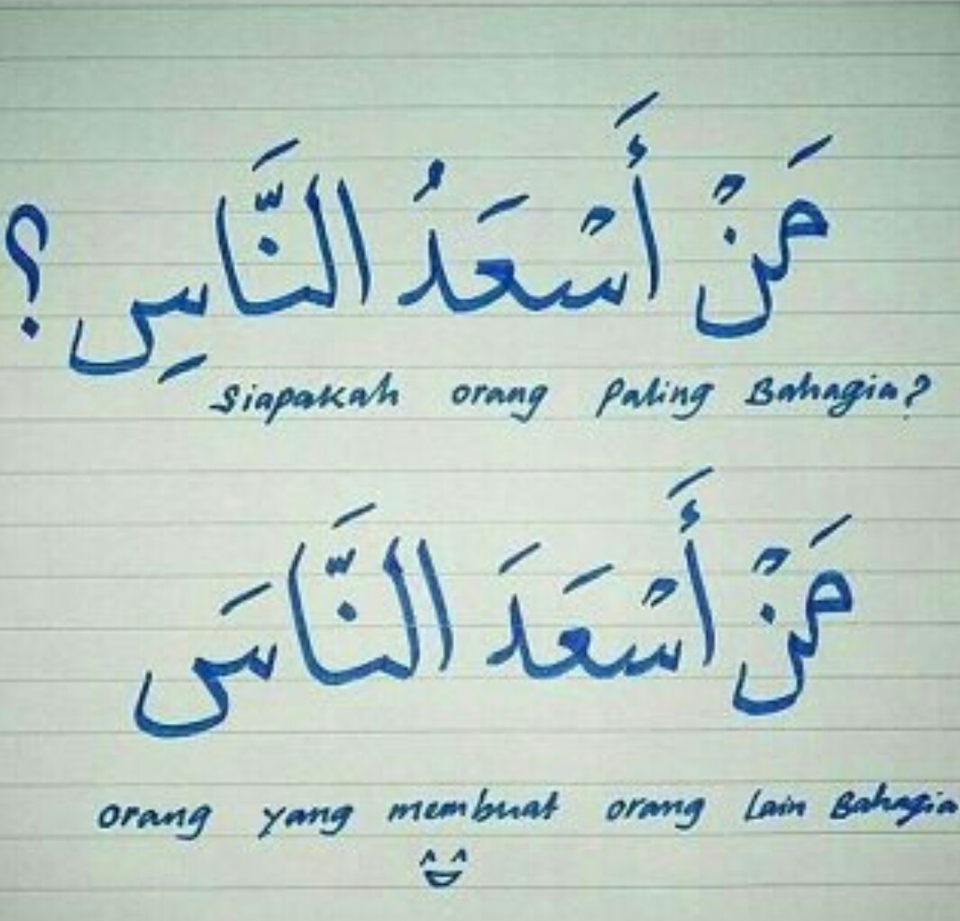 مَنْ أَسْعَدُ النَّاسِ ؟
Siapakah orang Paling Bahagia?
مَنْ أَسْعَدَ النَّاسَ
orang yang membuat orang Lain Bahagia